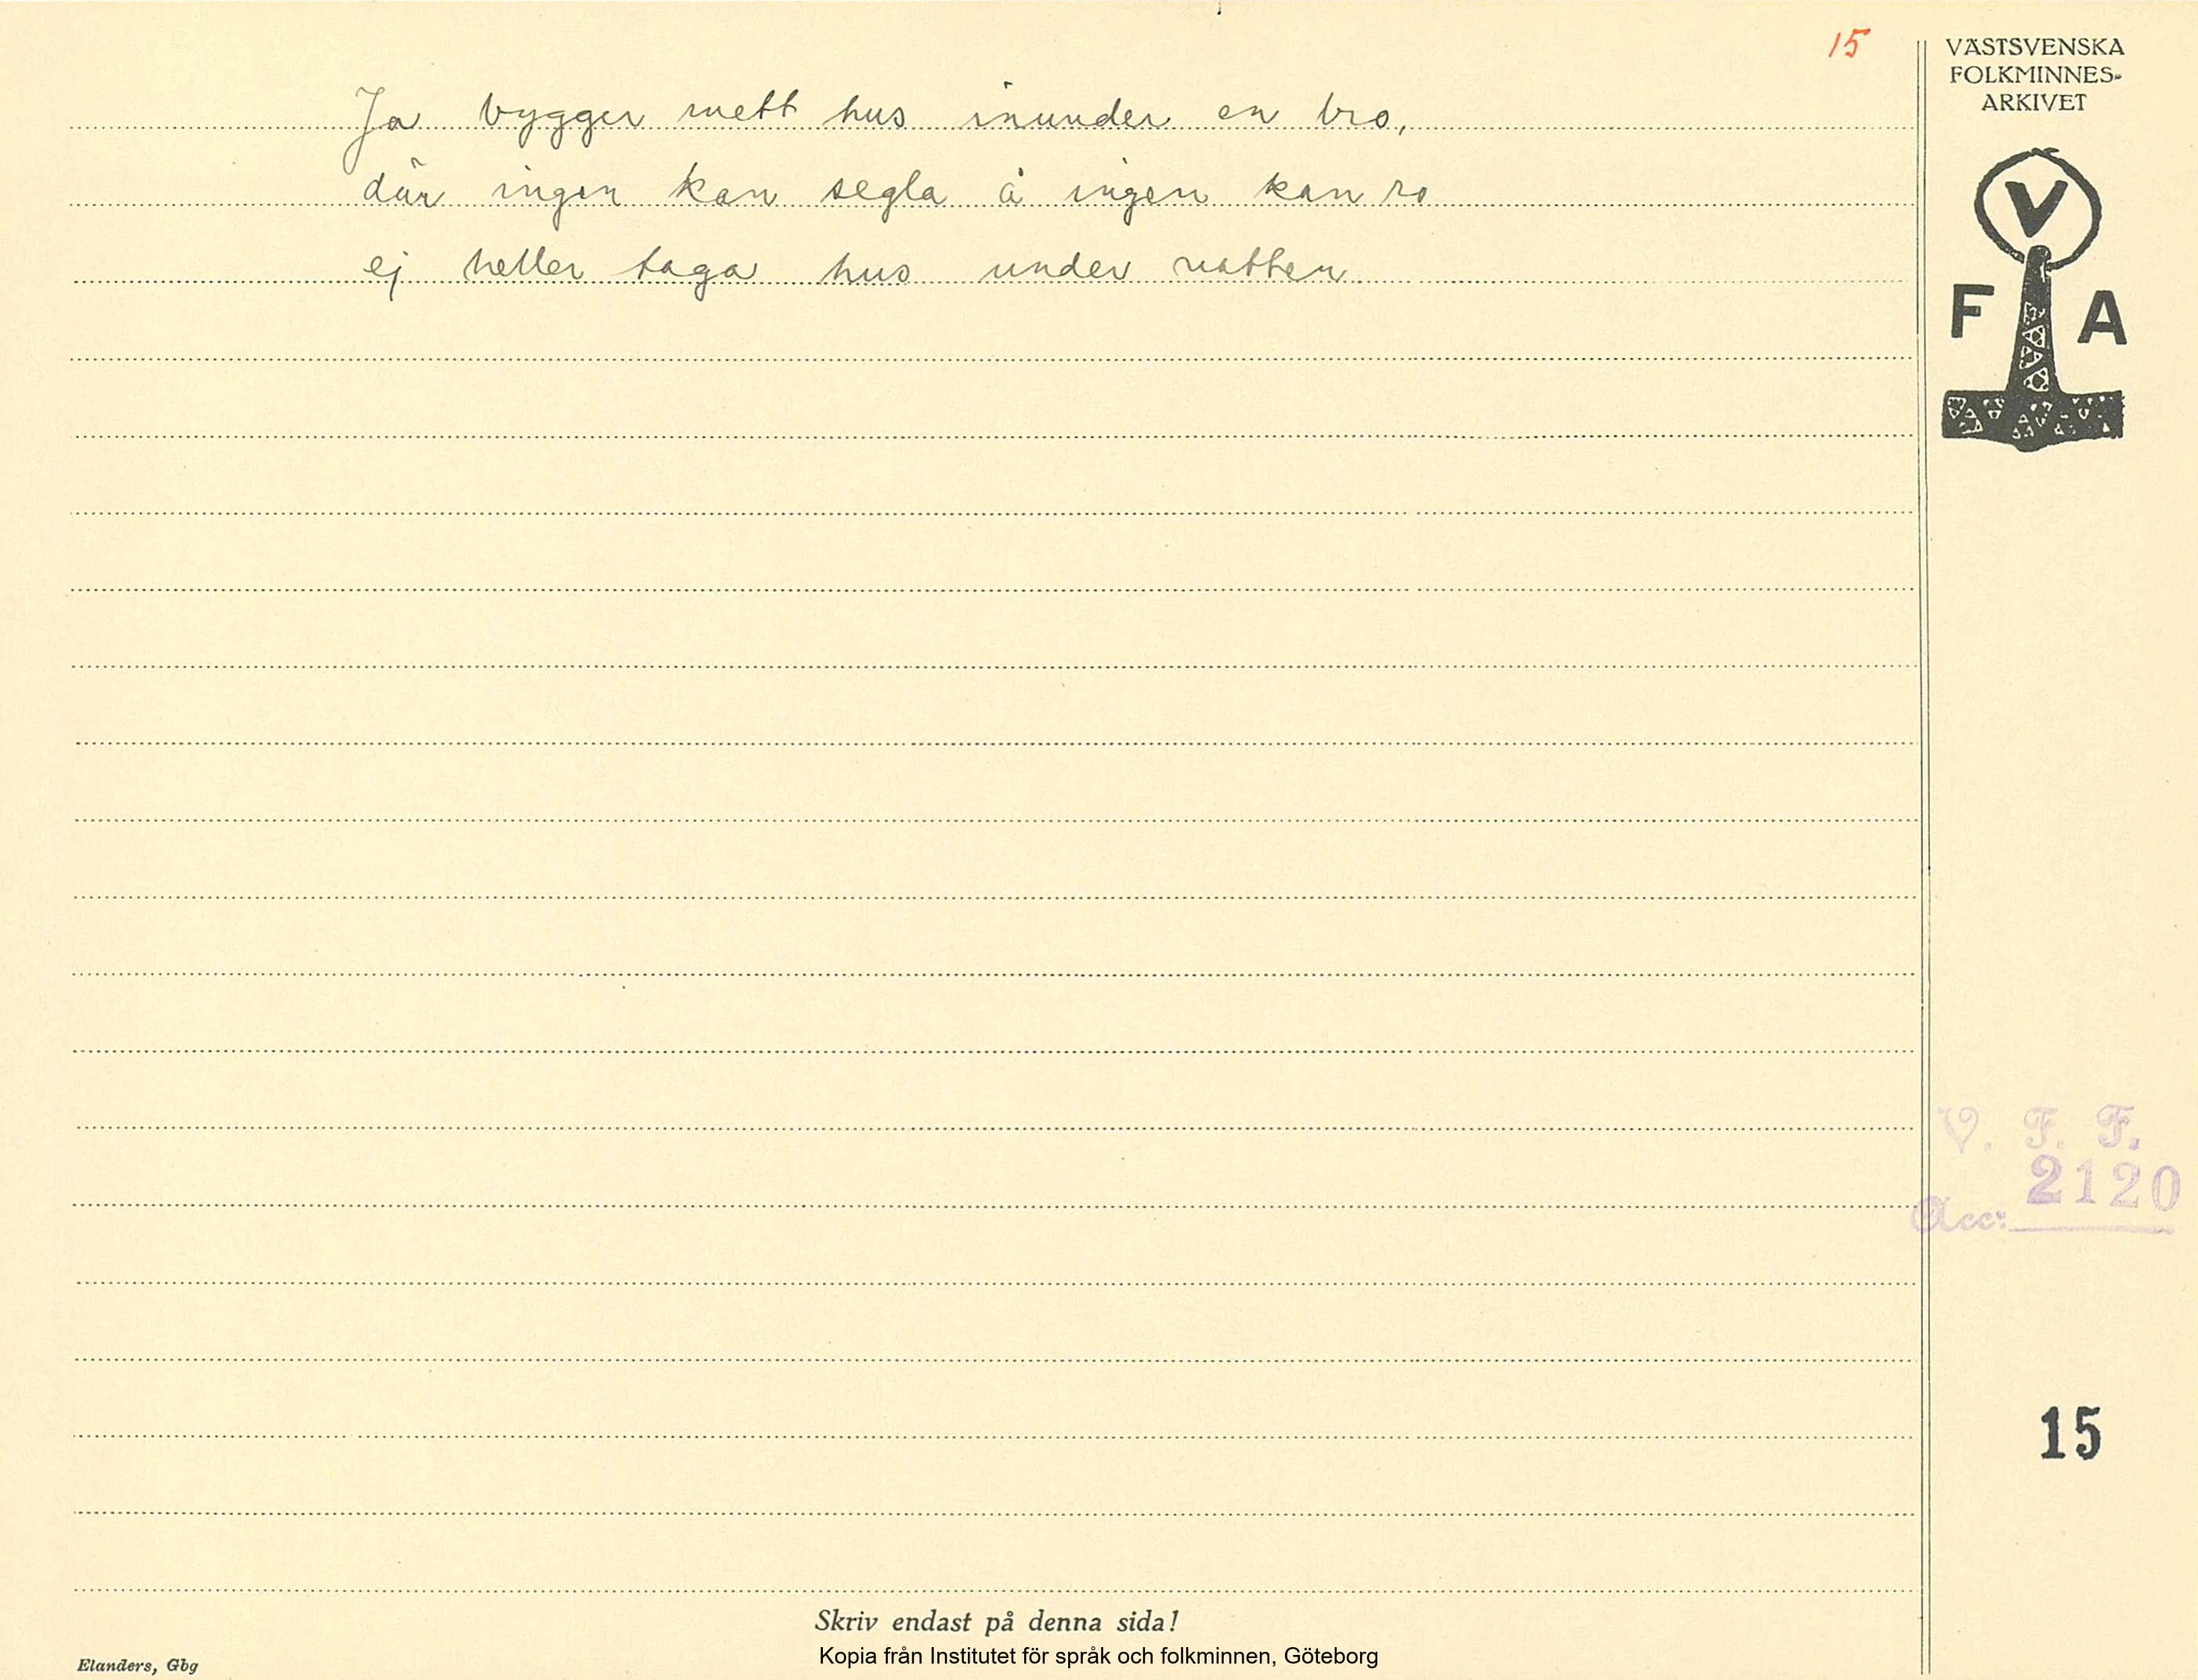 15
VÄSTSVENSKA
FOLKMINNES-
ARKIVET
Ja bygger mett hus inunder en bro,
där ingen kan segla å ingen kan ro
ej heller taga hus under natten.
V
F A
V. F. F.
2120
Acc:
15
Skriv endast på denna sida!
Kopia från Institutet för språk och folkminnen, Göteborg
Elanders, Gbg